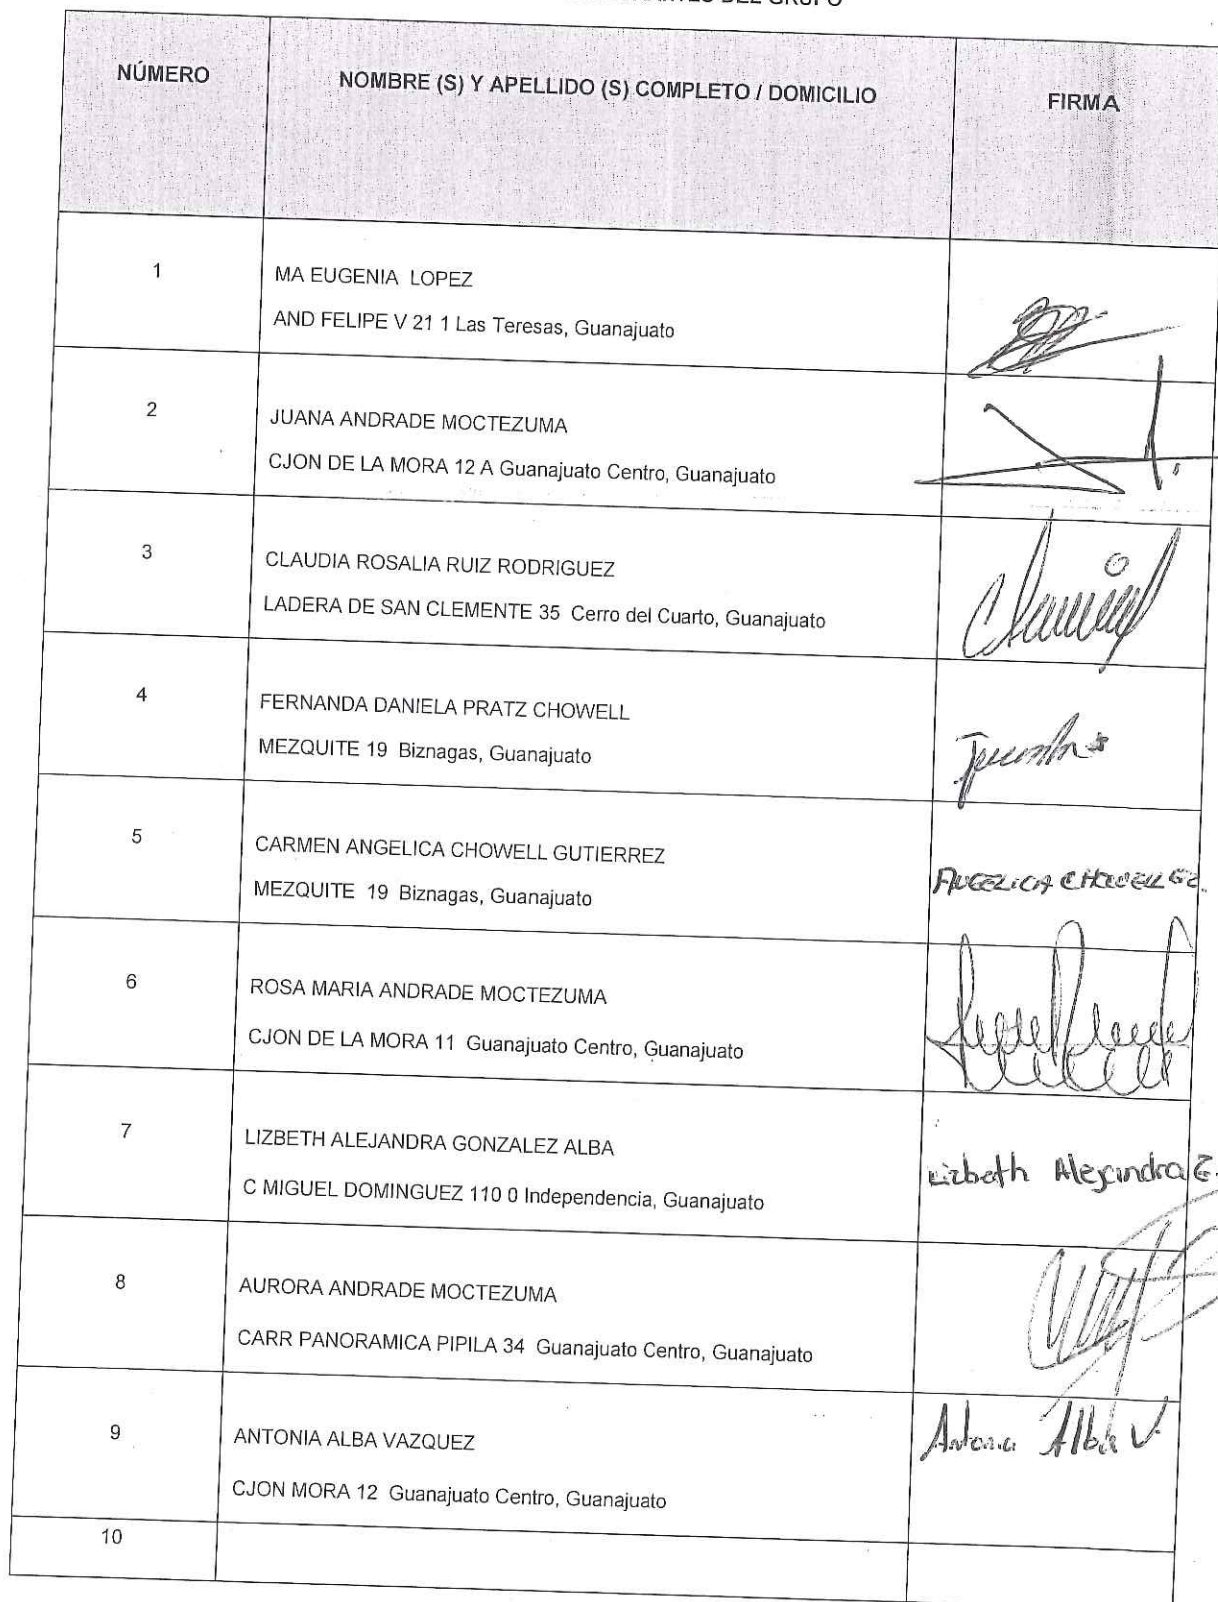 DEL GRUPO
NÚMERO
NOMBRE (S) Y APELLIDO (S) COMPLETO / DOMICILIO
FIRMA
1
MA EUGENIA LOPEZ
AND FELIPE V 21 1 Las Teresas, Guanajuato
2
JUANA ANDRADE MOCTEZUMA
CJON DE LA MORA 12 A Guanajuato Centro, Guanajuato
3
CLAUDIA ROSALIA RUIZ RODRIGUEZ
LADERA DE SAN CLEMENTE 35 Cerro del Cuarto, Guanajuato
4
FERNANDA DANIELA PRATZ CHOWELL
MEZQUITE 19 Biznagas, Guanajuato
5
CARMEN ANGELICA CHOWELL GUTIERREZ
MEZQUITE 19 Biznagas, Guanajuato
ANGELICA CHOWELL GZ.
6
ROSA MARIA ANDRADE MOCTEZUMA
CJON DE LA MORA 11 Guanajuato Centro, Guanajuato
7
LIZBETH ALEJANDRA GONZALEZ ALBA
C MIGUEL DOMINGUEZ 110 0 Independencia, Guanajuato
Lizbeth Alejandra G.
8
AURORA ANDRADE MOCTEZUMA
CARR PANORAMICA PIPILA 34 Guanajuato Centro, Guanajuato
9
ANTONIA ALBA VAZQUEZ
CJON MORA 12 Guanajuato Centro, Guanajuato
Antonia Alba V.
10